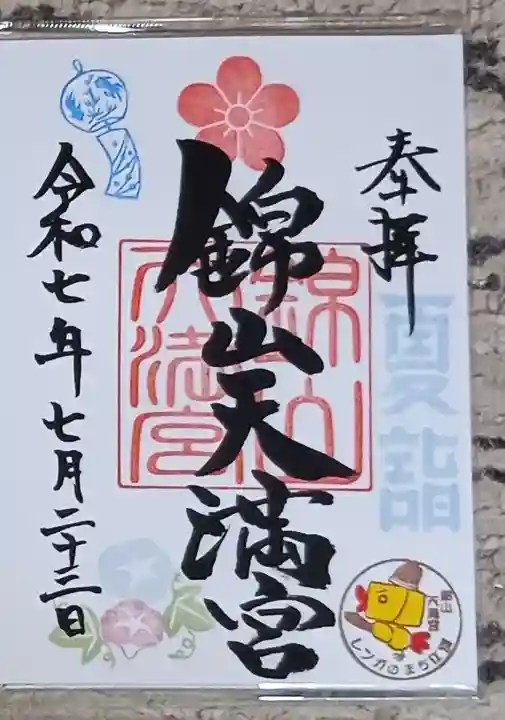 奉拝
夏詣
錦山天満宮
錦山天満宮
令和七年七月二十三日
錦山
天満宮
レンガのまち江別